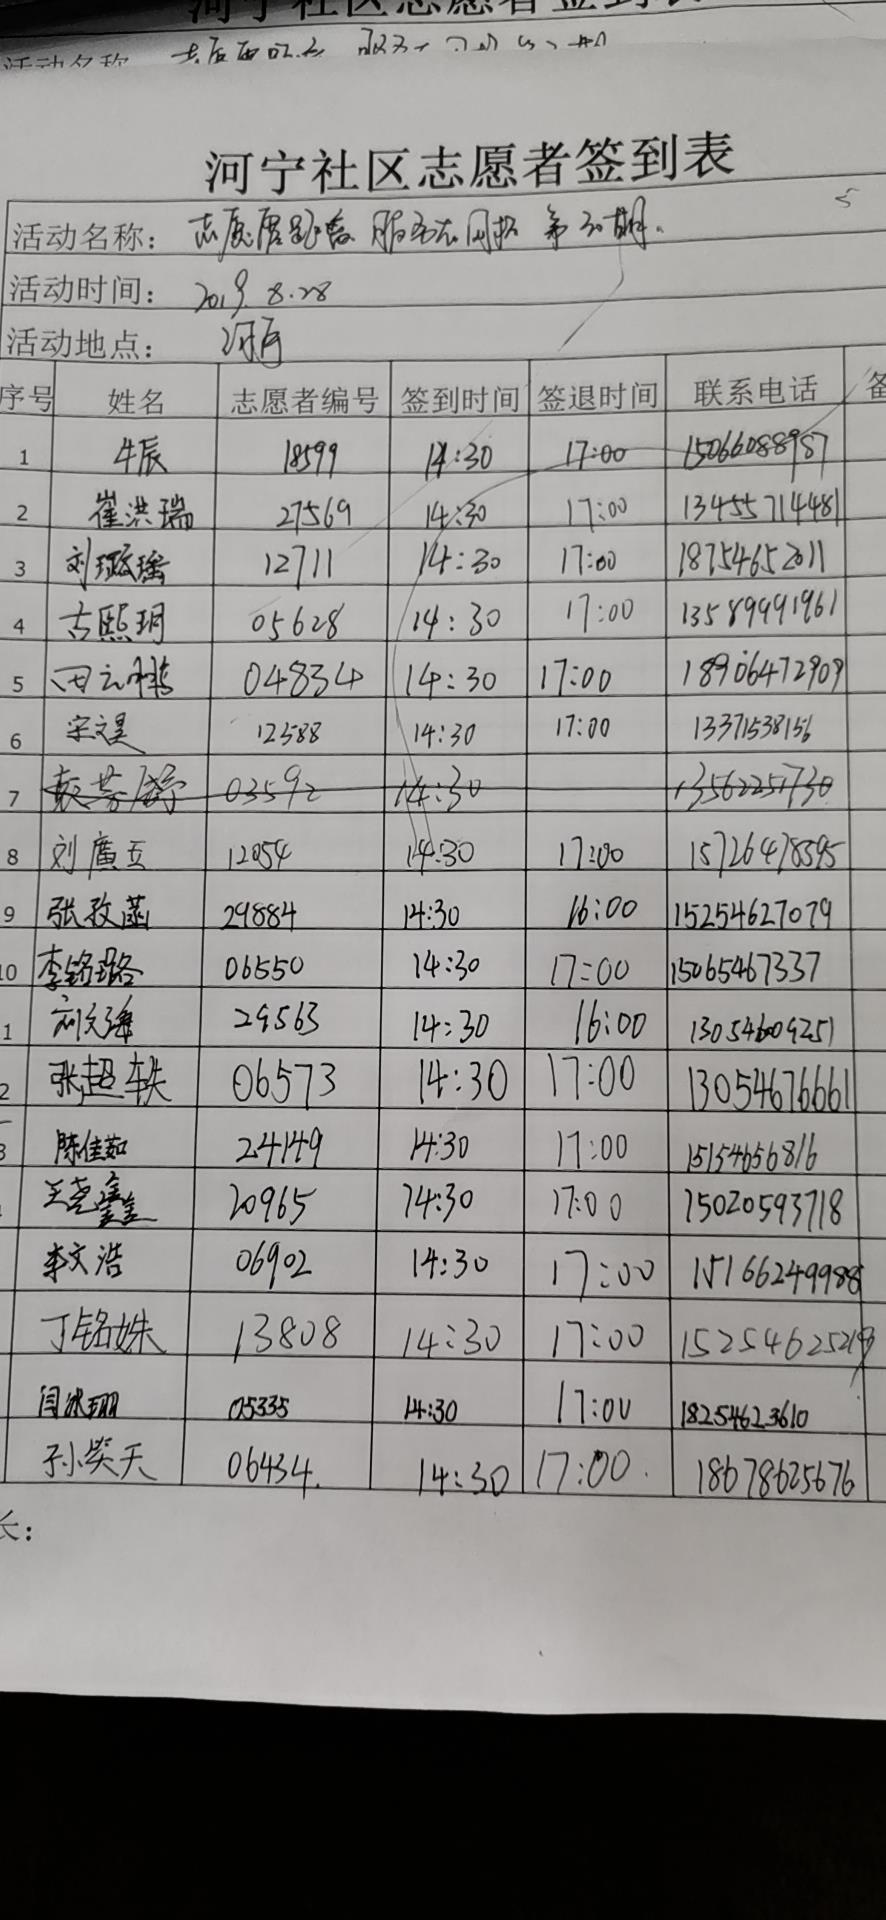 河宁社区志愿者签到表
活动名称:
河宁社区志愿者签到表
5
活动名称: 志愿 服务 第 期.
活动时间: 2019 8.28
活动地点:
序号 姓名 志愿者编号 签到时间 签退时间 联系电话 备
1 牛辰 18599 14:30 17:00 15066088987
2 崔洪瑞 27569 14:30 17:00 13455714481
3 刘璇瑶 12711 14:30 17:00 18754652011
4 古熙玥 05628 14:30 17:00 13589991961
5 田云 04834 14:30 17:00 18906472909
6 宋文昊 12588 14:30 17:00 13371538156
7 03592 14:30 13562251730
8 刘廣五 12054 14:30 17:00 15726478595
9 张孜菡 29884 14:30 16:00 15254627079
10 李铭璐 06550 14:30 17:00 15065467337
1 刘文 29563 14:30 16:00 13054609251
2 张超轶 06573 14:30 17:00 13054676661
3 陈佳茹 24149 14:30 17:00 15154656816
王尧鑫 20965 14:30 17:00 15020593718
李文浩 06902 14:30 17:00 15166249988
丁铭姝 13808 14:30 17:00 152546252
闫冰珊 05335 14:30 17:00 18254623610
孙笑天 06434. 14:30 17:00. 18678625676
长: